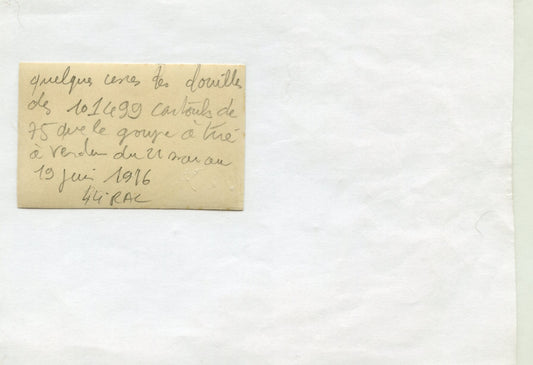 quelques unes des douilles
des 101499 cartouches de
75 que le groupe a tiré
à Verdun du 21 mai au
19 juin 1916
44e RAC